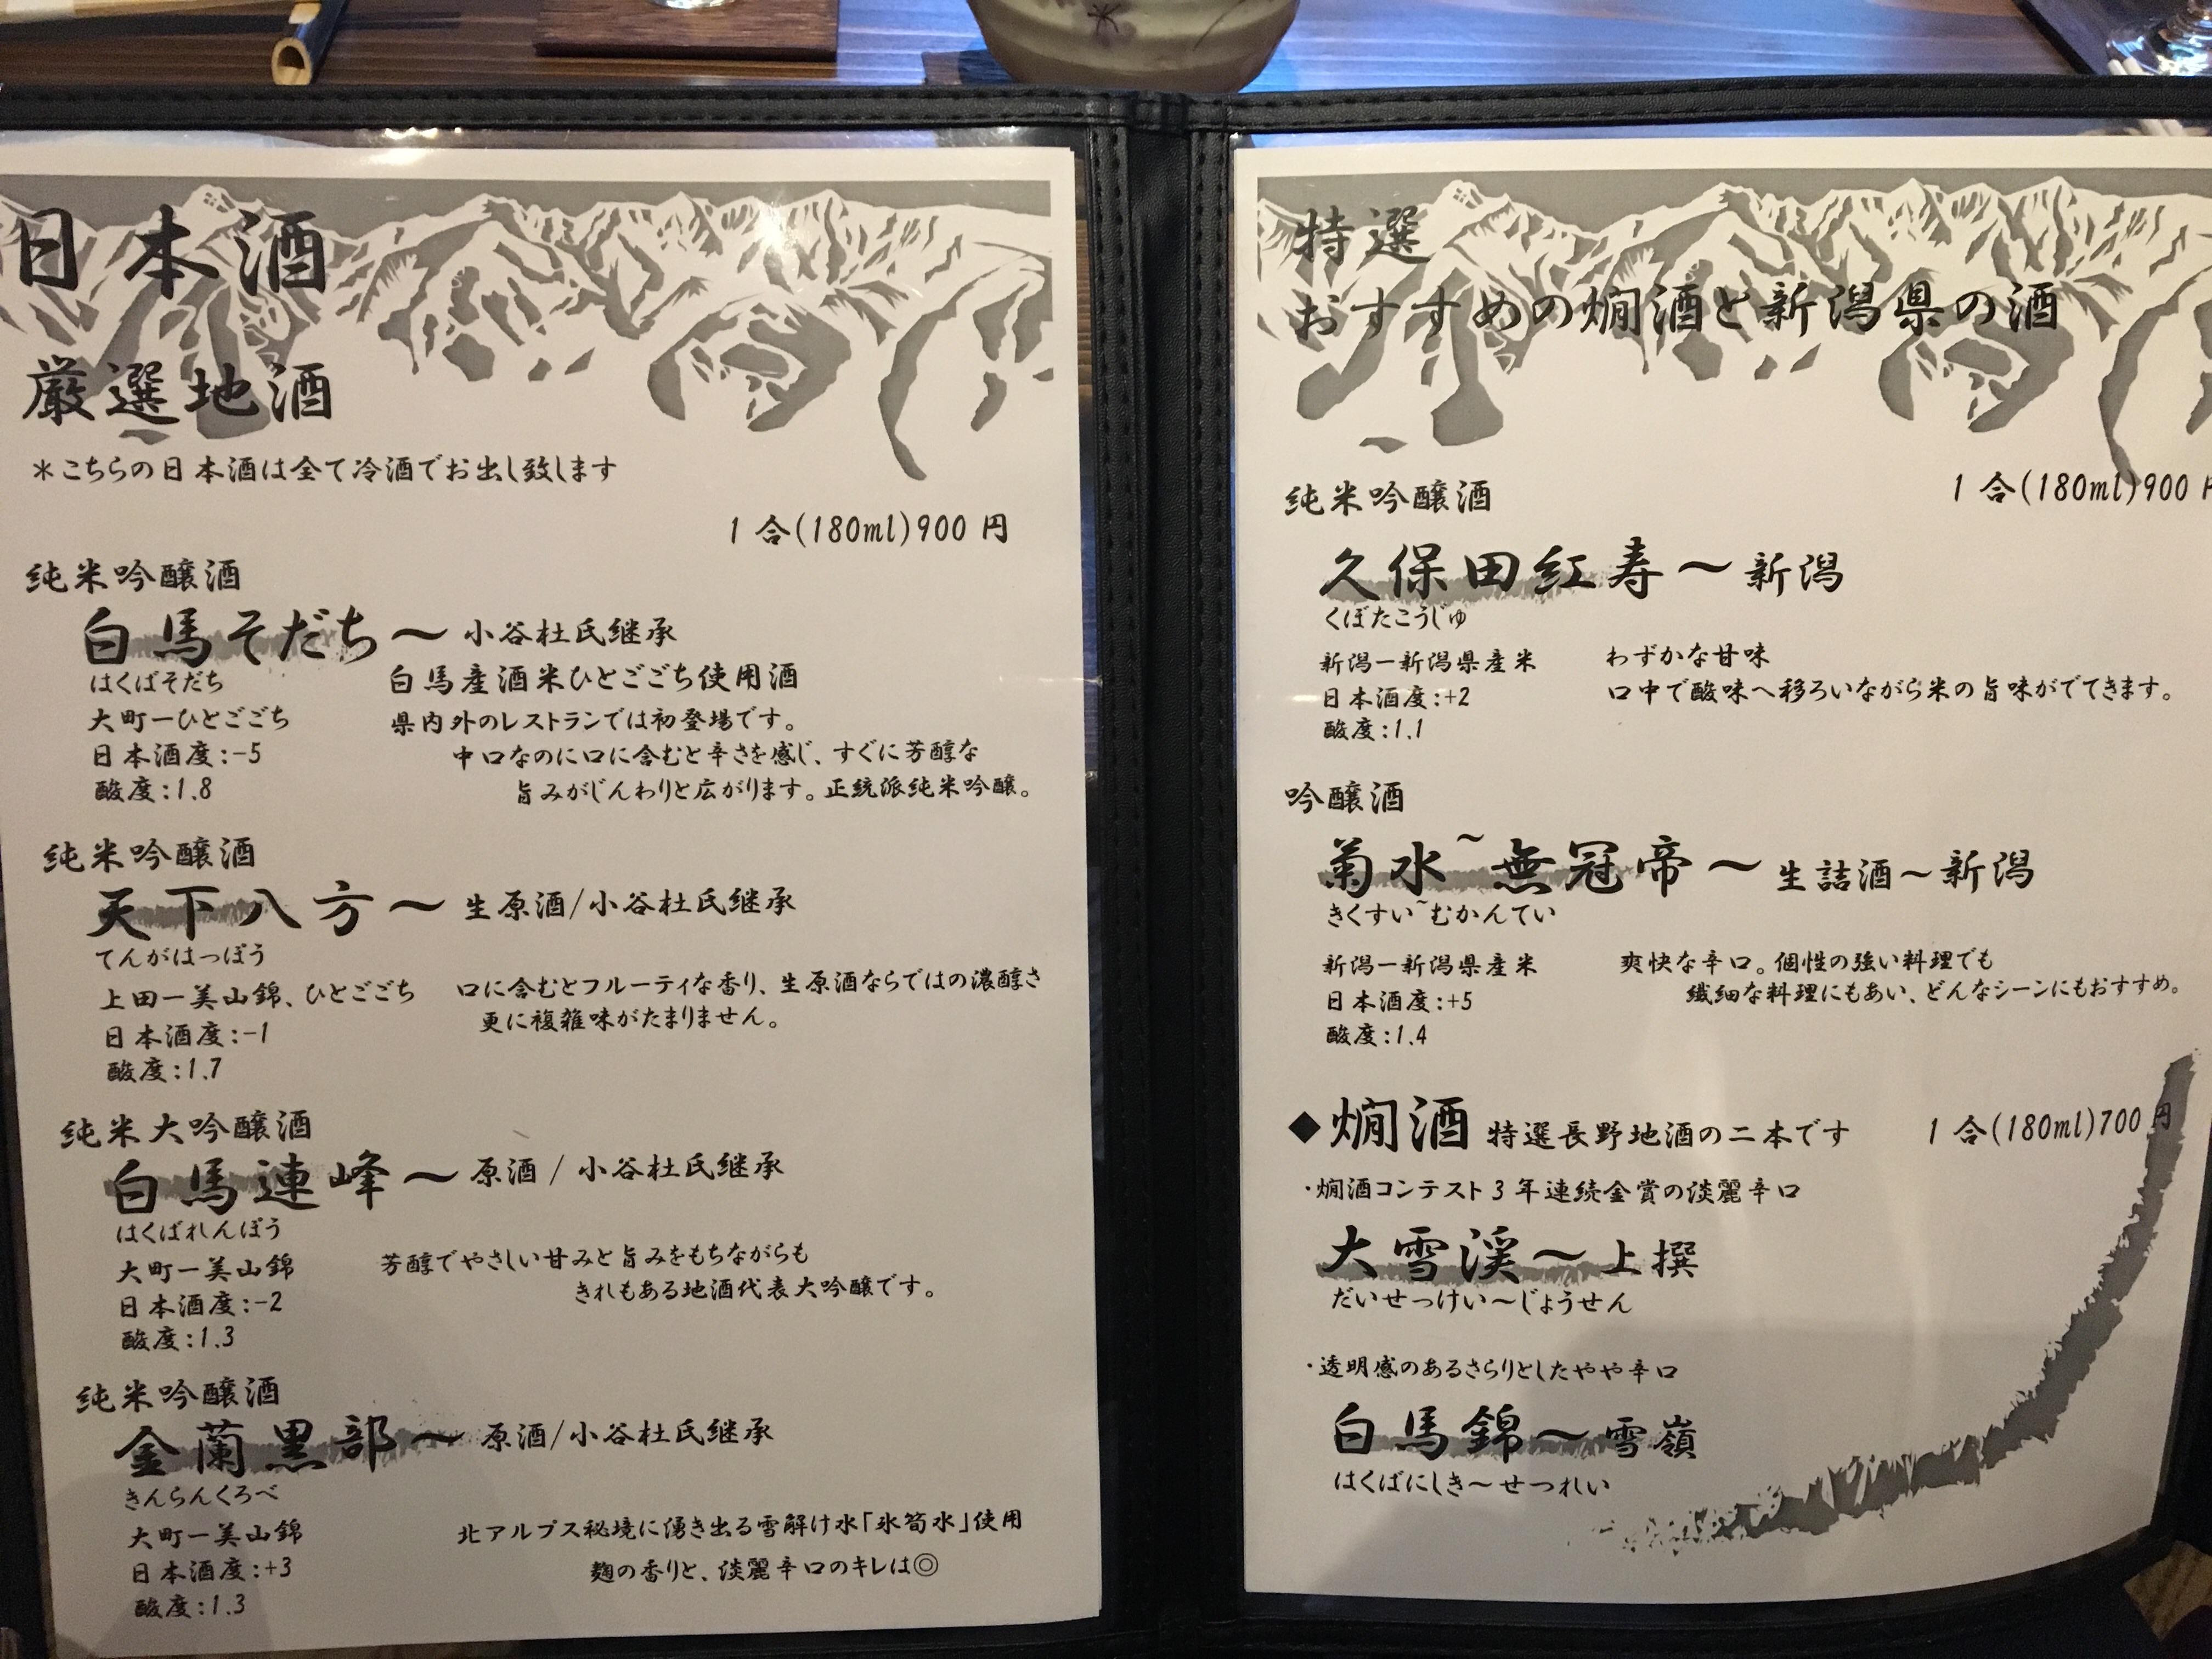 日本酒
厳選地酒
＊こちらの日本酒は全て冷酒でお出し致します
1合(180ml)900円
純米吟醸酒
白馬そだち～小谷杜氏継承
はくばそだち
白馬産酒米ひとごごち使用酒
大町ーひとごごち
県内外のレストランでは初登場です。
日本酒度:-5
中口なのに口に含むと辛さを感じ、すぐに芳醇な
酸度:1.8
旨みがじんわりと広がります。正統派純米吟醸。
純米吟醸酒
天下八方～生原酒/小谷杜氏継承
てんがはっぽう
上田ー美山錦、ひとごごち
口に含むとフルーティな香り、生原酒ならではの濃醇さ
更に複雑味がたまりません。
日本酒度:-1
酸度:1.7
純米大吟醸酒
白馬連峰～原酒/小谷杜氏継承
はくばれんぽう
大町ー美山錦
芳醇でやさしい甘みと旨みをもちながらも
きれもある地酒代表大吟醸です。
日本酒度:-2
酸度:1.3
純米吟醸酒
金蘭黒部～原酒/小谷杜氏継承
きんらんくろべ
大町ー美山錦
北アルプス秘境に湧き出る雪解け水「氷筍水」使用
日本酒度:+3
麹の香りと、淡麗辛口のキレは◎
酸度:1.3
特選
おすすめの燗酒と新潟県の酒
1合(180ml)900
純米吟醸酒
久保田紅寿～新潟
くぼたこうじゅ
新潟ー新潟県産米
わずかな甘味
日本酒度:+2
口中で酸味へ移ろいながら米の旨味がでてきます。
酸度:1.1
吟醸酒
菊水~無冠帝～生詰酒～新潟
きくすい~むかんてい
新潟ー新潟県産米
爽快な辛口。個性の強い料理でも
繊細な料理にもあい、どんなシーンにもおすすめ。
日本酒度:+5
酸度:1.4
◆燗酒 特選長野地酒の二本です 1合(180ml)700円
・燗酒コンテスト3年連続金賞の淡麗辛口
大雪渓～上撰
だいせっけい～じょうせん
・透明感のあるさらりとしたやや辛口
白馬錦～雪嶺
はくばにしき～せつれい